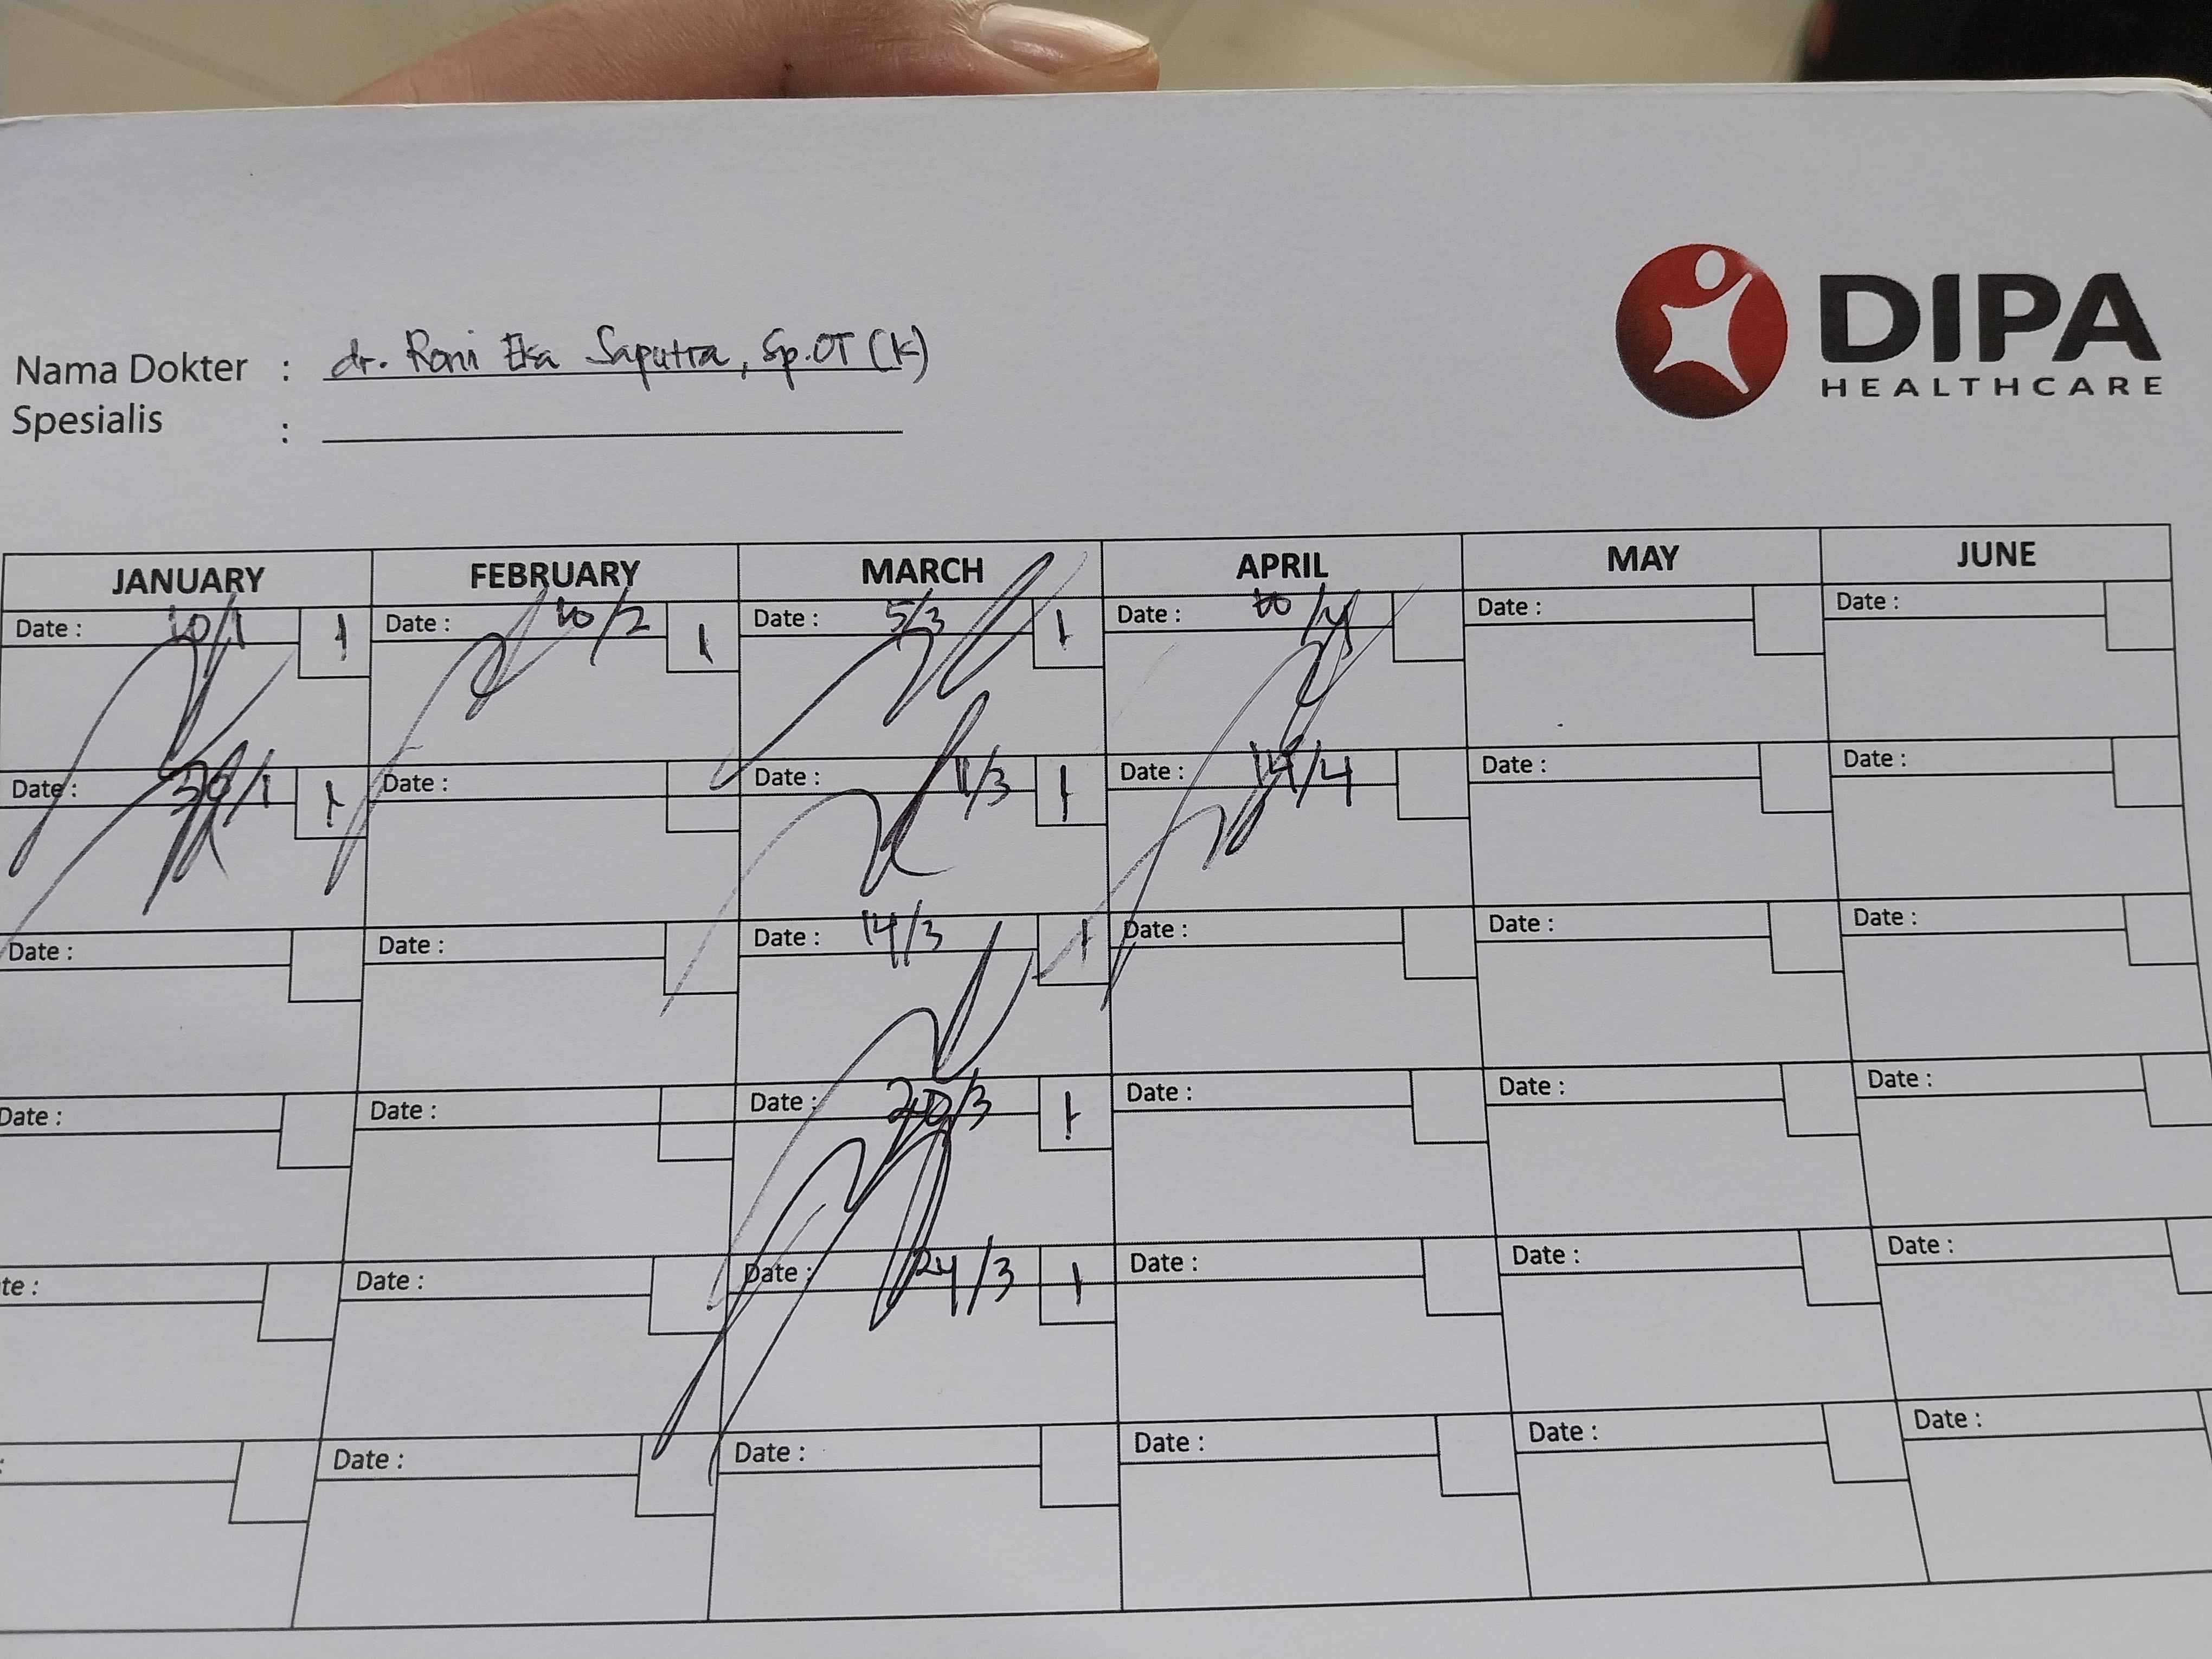 DIPA
HEALTHCARE
Nama Dokter : dr. Roni Eka Saputra, Sp.OT (K)
Spesialis :
JANUARY FEBRUARY MARCH APRIL MAY JUNE
Date : 10/1 1 Date : 10/2 1 Date : 5/3 1 Date : 10/4 Date : Date :
Date : 30/1 1 Date : Date : 11/3 1 Date : 14/4 Date : Date :
Date : Date : Date : 14/3 1 Date : Date : Date :
Date : Date : Date : 20/3 1 Date : Date : Date :
te : Date : Date : 24/3 1 Date : Date : Date :
: Date : Date : Date : Date : Date :